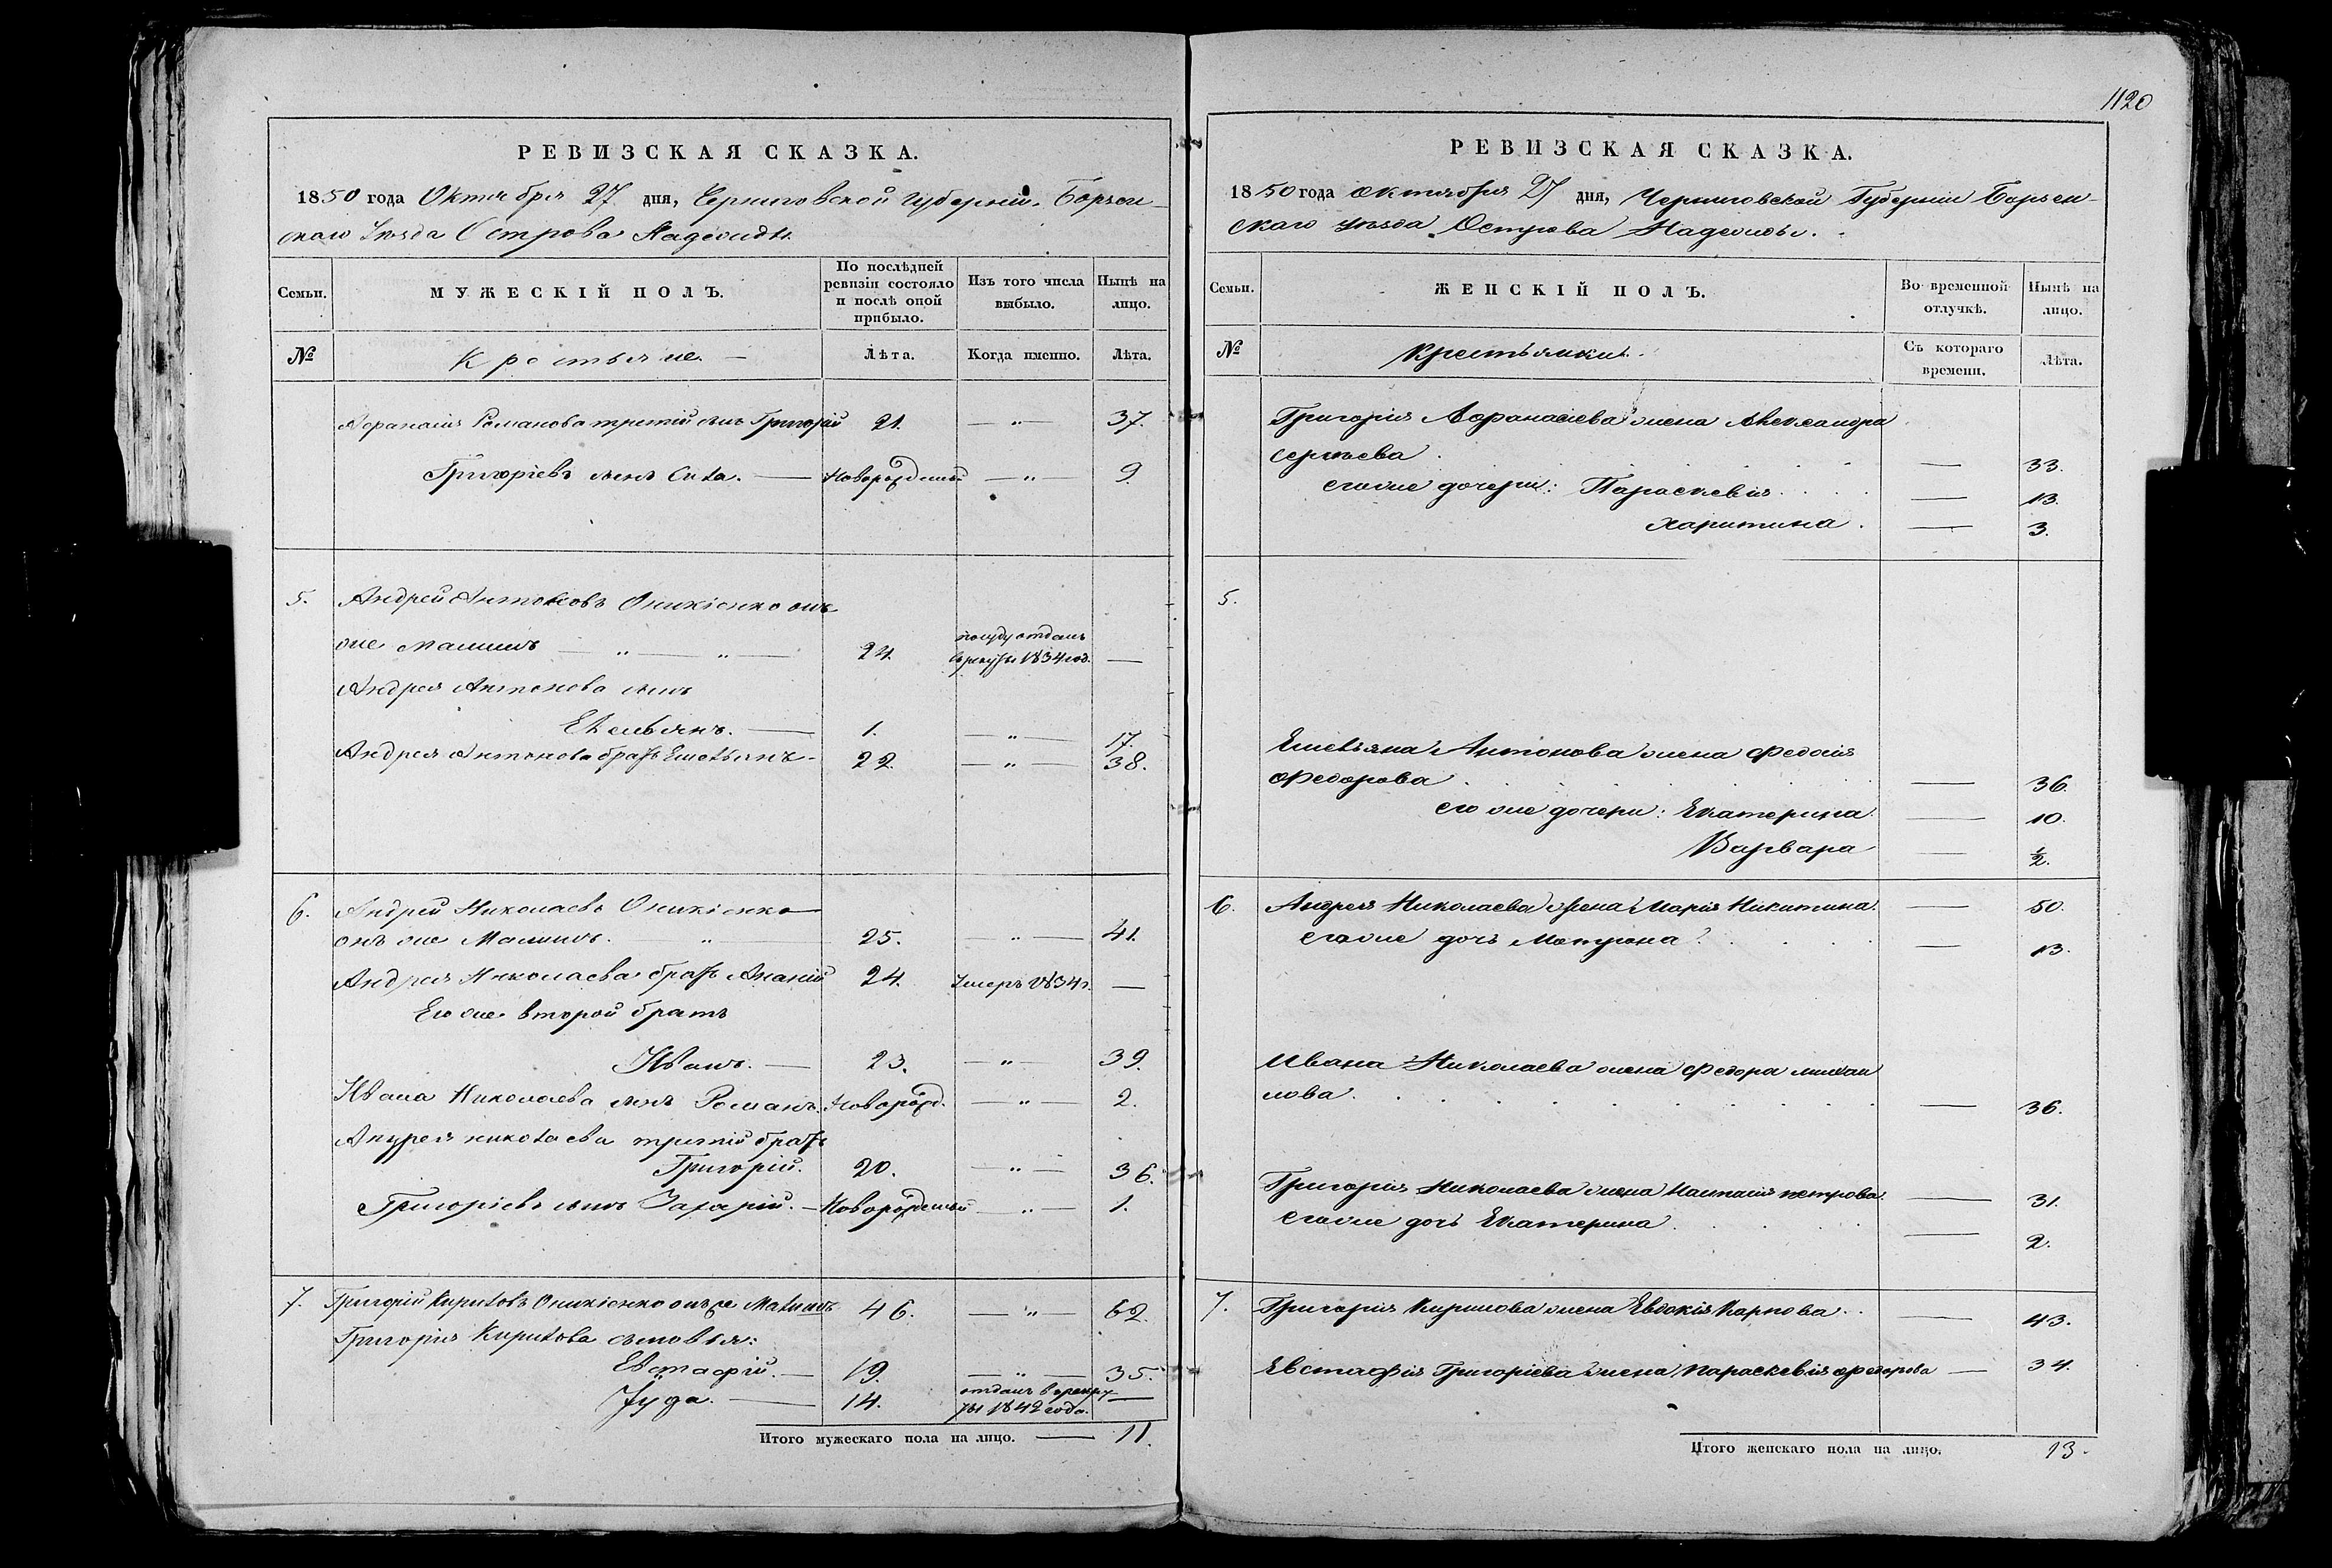 РЕВИЗСКАЯ СКАЗКА.
1850 года Октября 27 дня, Черниговской губерніи, Борзен-
скаго Уѣзда Острова Надежды.
Семьи.
МУЖЕСКІЙ ПОЛЪ.
По послѣдней ревизіи состояло и послѣ оной прибыло.
Изъ того числа выбыло.
Нынѣ на лицо.
№
Крестьяне. —
Лѣта.
Когда именно.
Лѣта.
Афанасія Романова третій сынъ Григорій 21. — „ — 37.
Григоріевъ сынъ Сила. — Новорожденый — „ — 9.
5. Андрей Антоновъ Оникіенко онъ
же Малышъ — „ — „ — 24. отданъ
в рекруты 1834 год. —
Андрея Антонова сынъ
Емельянъ. — 1. — „ — 17.
Андрея Антонова братъ Емельянъ - 22. — „ — 38.
6. Андрей Николаевъ Оникіенко
онъ же Малышъ. — „ — 25. — „ — 41.
Андрея Николаева братъ Ананій 24. Умеръ 1834 г. —
Его же второй братъ
Иванъ. — 23. — „ — 39.
Ивана Николаева сынъ Романъ. Новорожд. — „ — 2.
Андрея николаева третій братъ
Григорій. 20. — „ — 36.
Григоріевъ сынъ Захарій. — Новорожденый — „ — 1.
7. Григорій Кириловъ Оникіенко онъ же Малышъ 46. — „ — 62.
Григорія Кирилова сыновья:
Евстафій. — 19. — „ — 35.
Іуда. — 14. отданъ в рекру-
ты 1842 года. —
Итого мужескаго пола на лицо. — 11.
1120
РЕВИЗСКАЯ СКАЗКА.
1850 года октября 27 дня, Черниговской Губерніи Борзен-
скаго уѣзда Острова Надежды.
Семьи.
ЖЕНСКІЙ ПОЛЪ.
Во временной отлучкѣ.
Нынѣ на лицо.
№
Крестьянки.
Съ котораго времени.
Лѣта.
Григорія Афанасіева жена Александра
Сергѣева . — 33.
его же дочери: Параскевія . . . — 13.
Харитина . — 3.
5.
Емельяна Антонова жена Федосія
Федорова . — 36.
его же дочери: Екатерина — 10.
Варвара — ½.
6. Андрея Николаева жена Марія Никитина. — 50.
его же дочь Матрона . — 13.
Ивана Николаева жена Федора михаи
лова. — 36.
Григорія Николаева жена Настасія петрова. — 31.
его же дочь Екатерина . — 2.
7. Григорія Кирилова жена Евдокія Карпова . . — 43.
Евстафія Григоріева жена Параскевія федорова — 34.
Итого женскаго пола на лицо. 13.